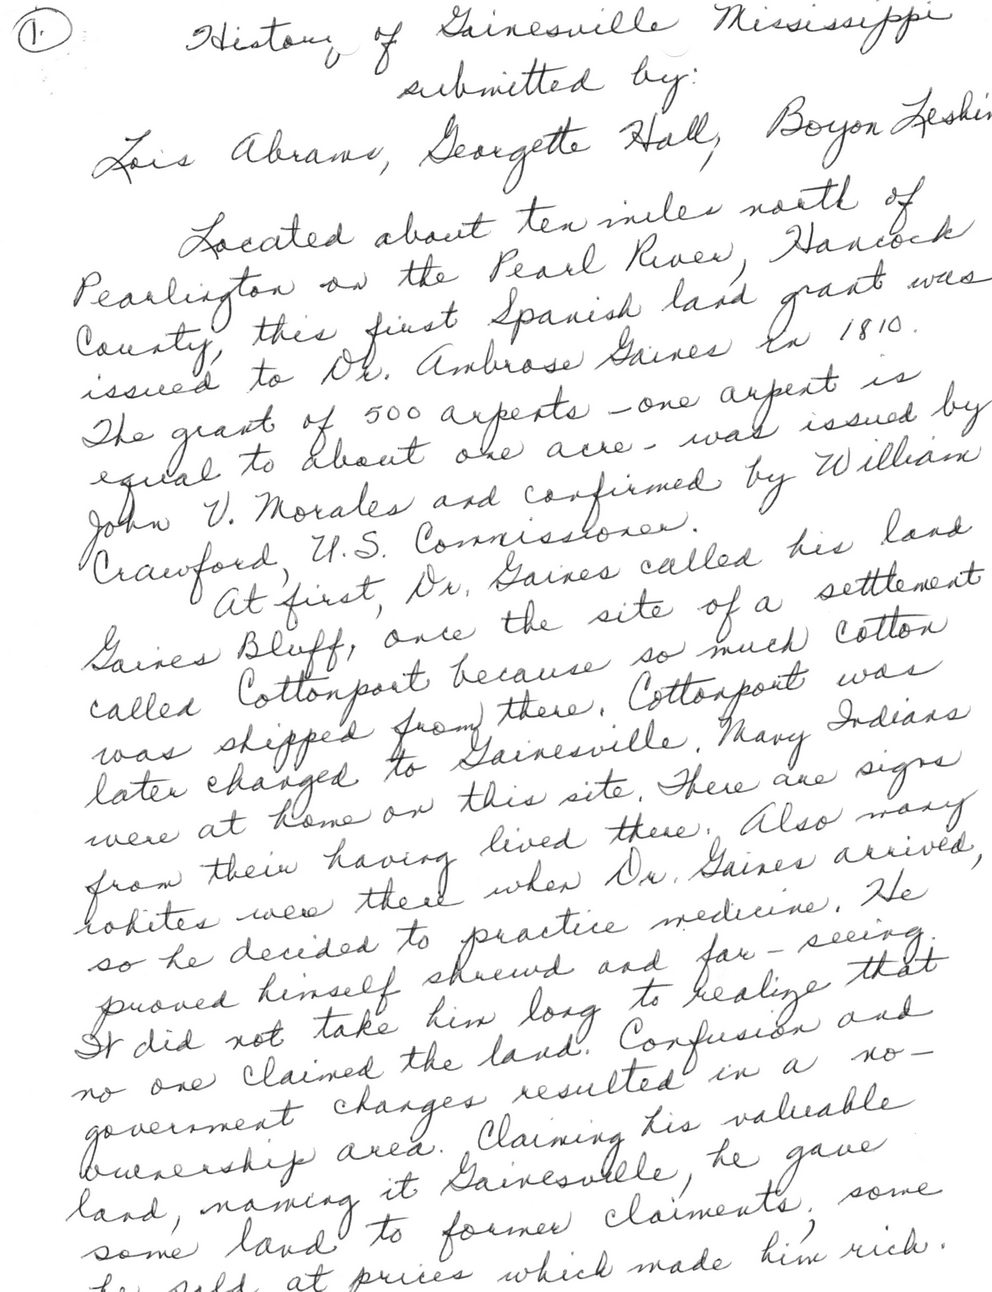 1.
History of Gainesville Mississippi
submitted by:
Lois Abrams, Georgette Hall, Boyon Leshin
Located about ten miles north of
Pearlington on the Pearl River, Hancock
County, this first Spanish land grant was
issued to Dr. Ambrose Gaines in 1810.
The grant of 500 arpents - one arpent is
equal to about one acre - was issued by
John V. Morales and confirmed by William
Crawford, U.S. Commissioner.
At first, Dr. Gaines called his land
Gaines Bluff, once the site of a settlement
called Cottonport because so much cotton
was shipped from there. Cottonport was
later changed to Gainesville. Many Indians
were at home on this site. There are signs
from their having lived there. Also many
whites were there when Dr. Gaines arrived,
so he decided to practice medicine. He
proved himself shrewd and far-seeing.
It did not take him long to realize that
no one claimed the land. Confusion and
government changes resulted in a no-
ownership area. Claiming his valuable
land, naming it Gainesville, he gave
some land to former claiments, some
he sold at prices which made him rich.